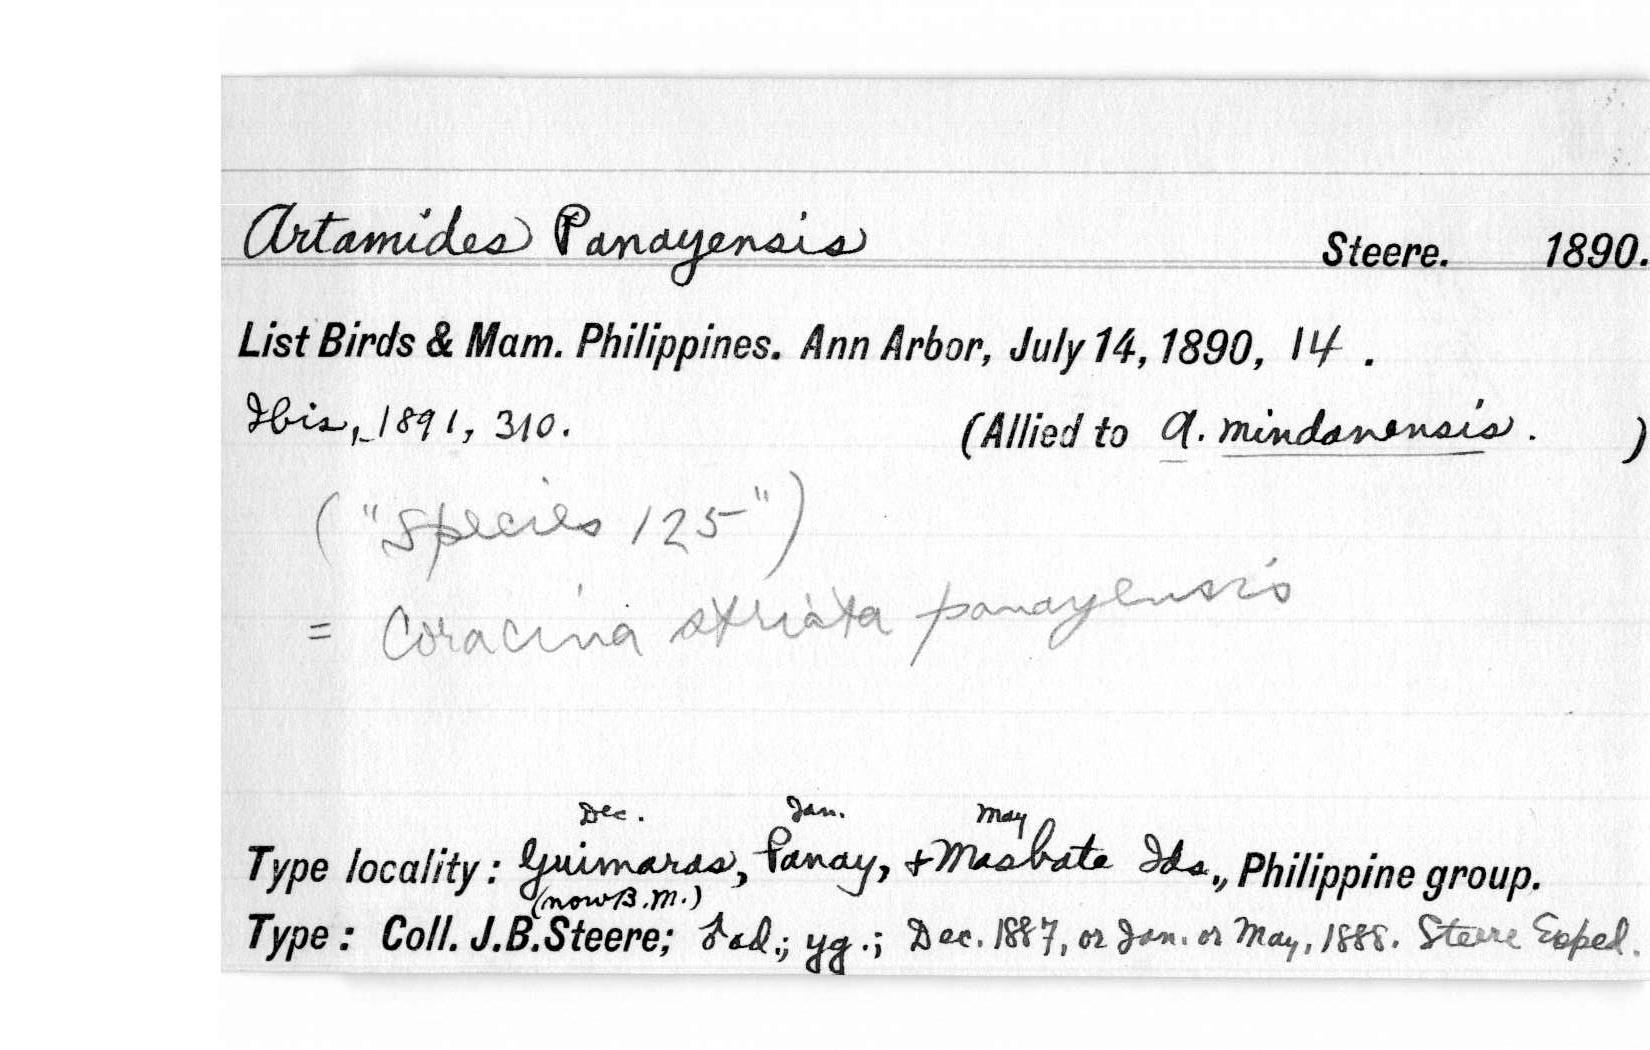 Artamides Panayensis Steere. 1890.
List Birds & Mam. Philippines. Ann Arbor, July 14, 1890, 14.
Ibis, 1891, 310. (Allied to A. mindanensis. )
("Species 125")
= Coracina striata panayensis
Dec. Jan. May
Type locality: Guimaras, Panay, + Masbate Ids., Philippine group.
(now B.M.)
Type: Coll. J.B.Steere; ad.; yg.; Dec. 1887, or Jan. or May, 1888. Steere Exped.